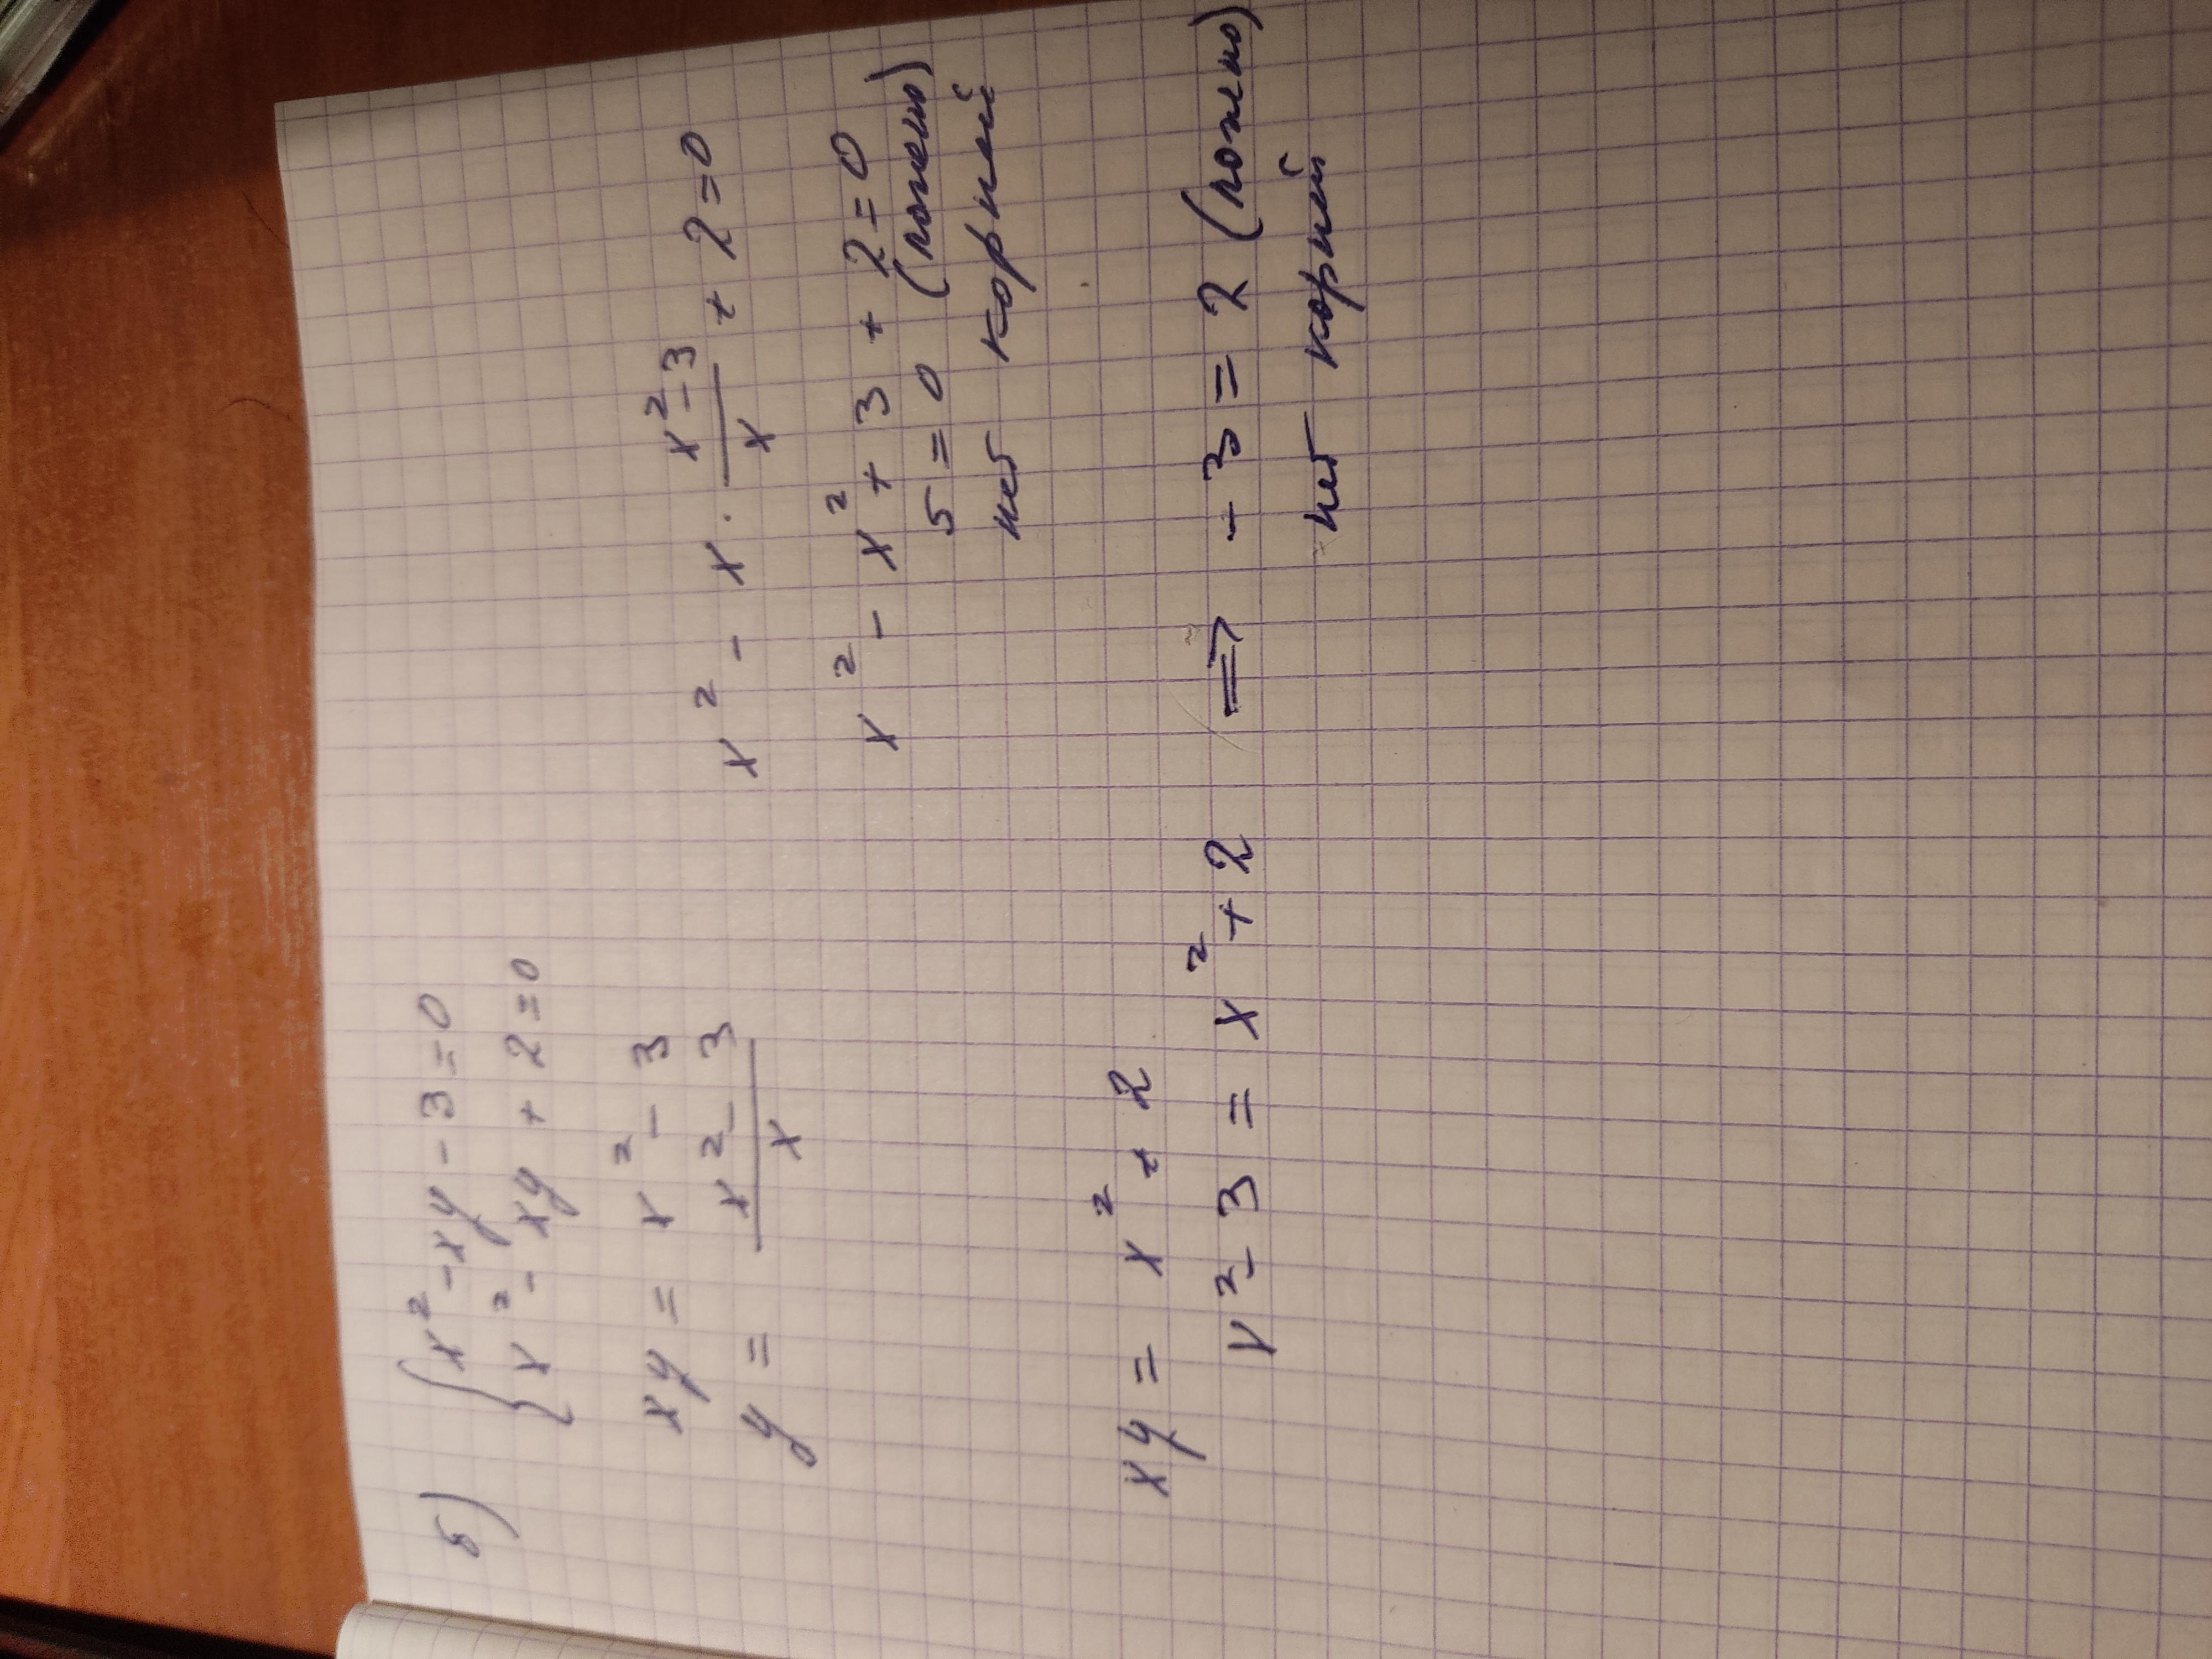 б) { x² - xy - 3 = 0
x² - xy + 2 = 0
xy = x² - 3
y = (x² - 3)/x
x² - x · (x² - 3)/x + 2 = 0
x² - x² + 3 + 2 = 0
5 = 0 (ложно)
нет корней
xy = x² + 2
x² - 3 = x² + 2 => - 3 = 2 (ложно)
нет корней